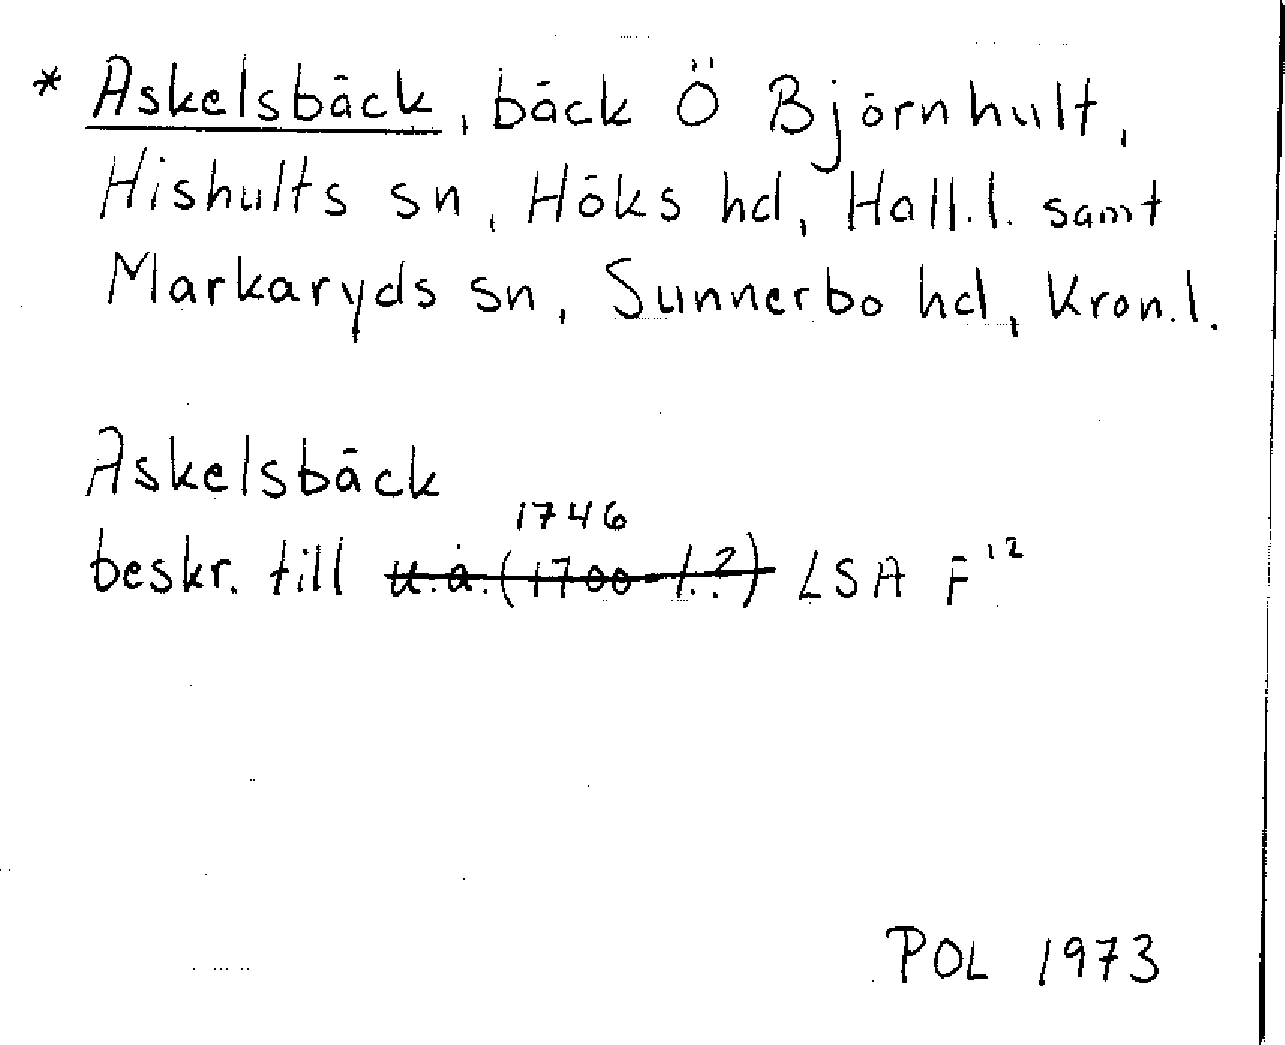 * Askelsbäck, bäck Ö Björnhult,
Hishults sn, Höks hd, Hall.l. samt
Markaryds sn, Sunnerbo hd, Kron.l.
Askelsbäck
1746
beskr. till u.å. (1700-t.?) LSA F¹²
POL 1973